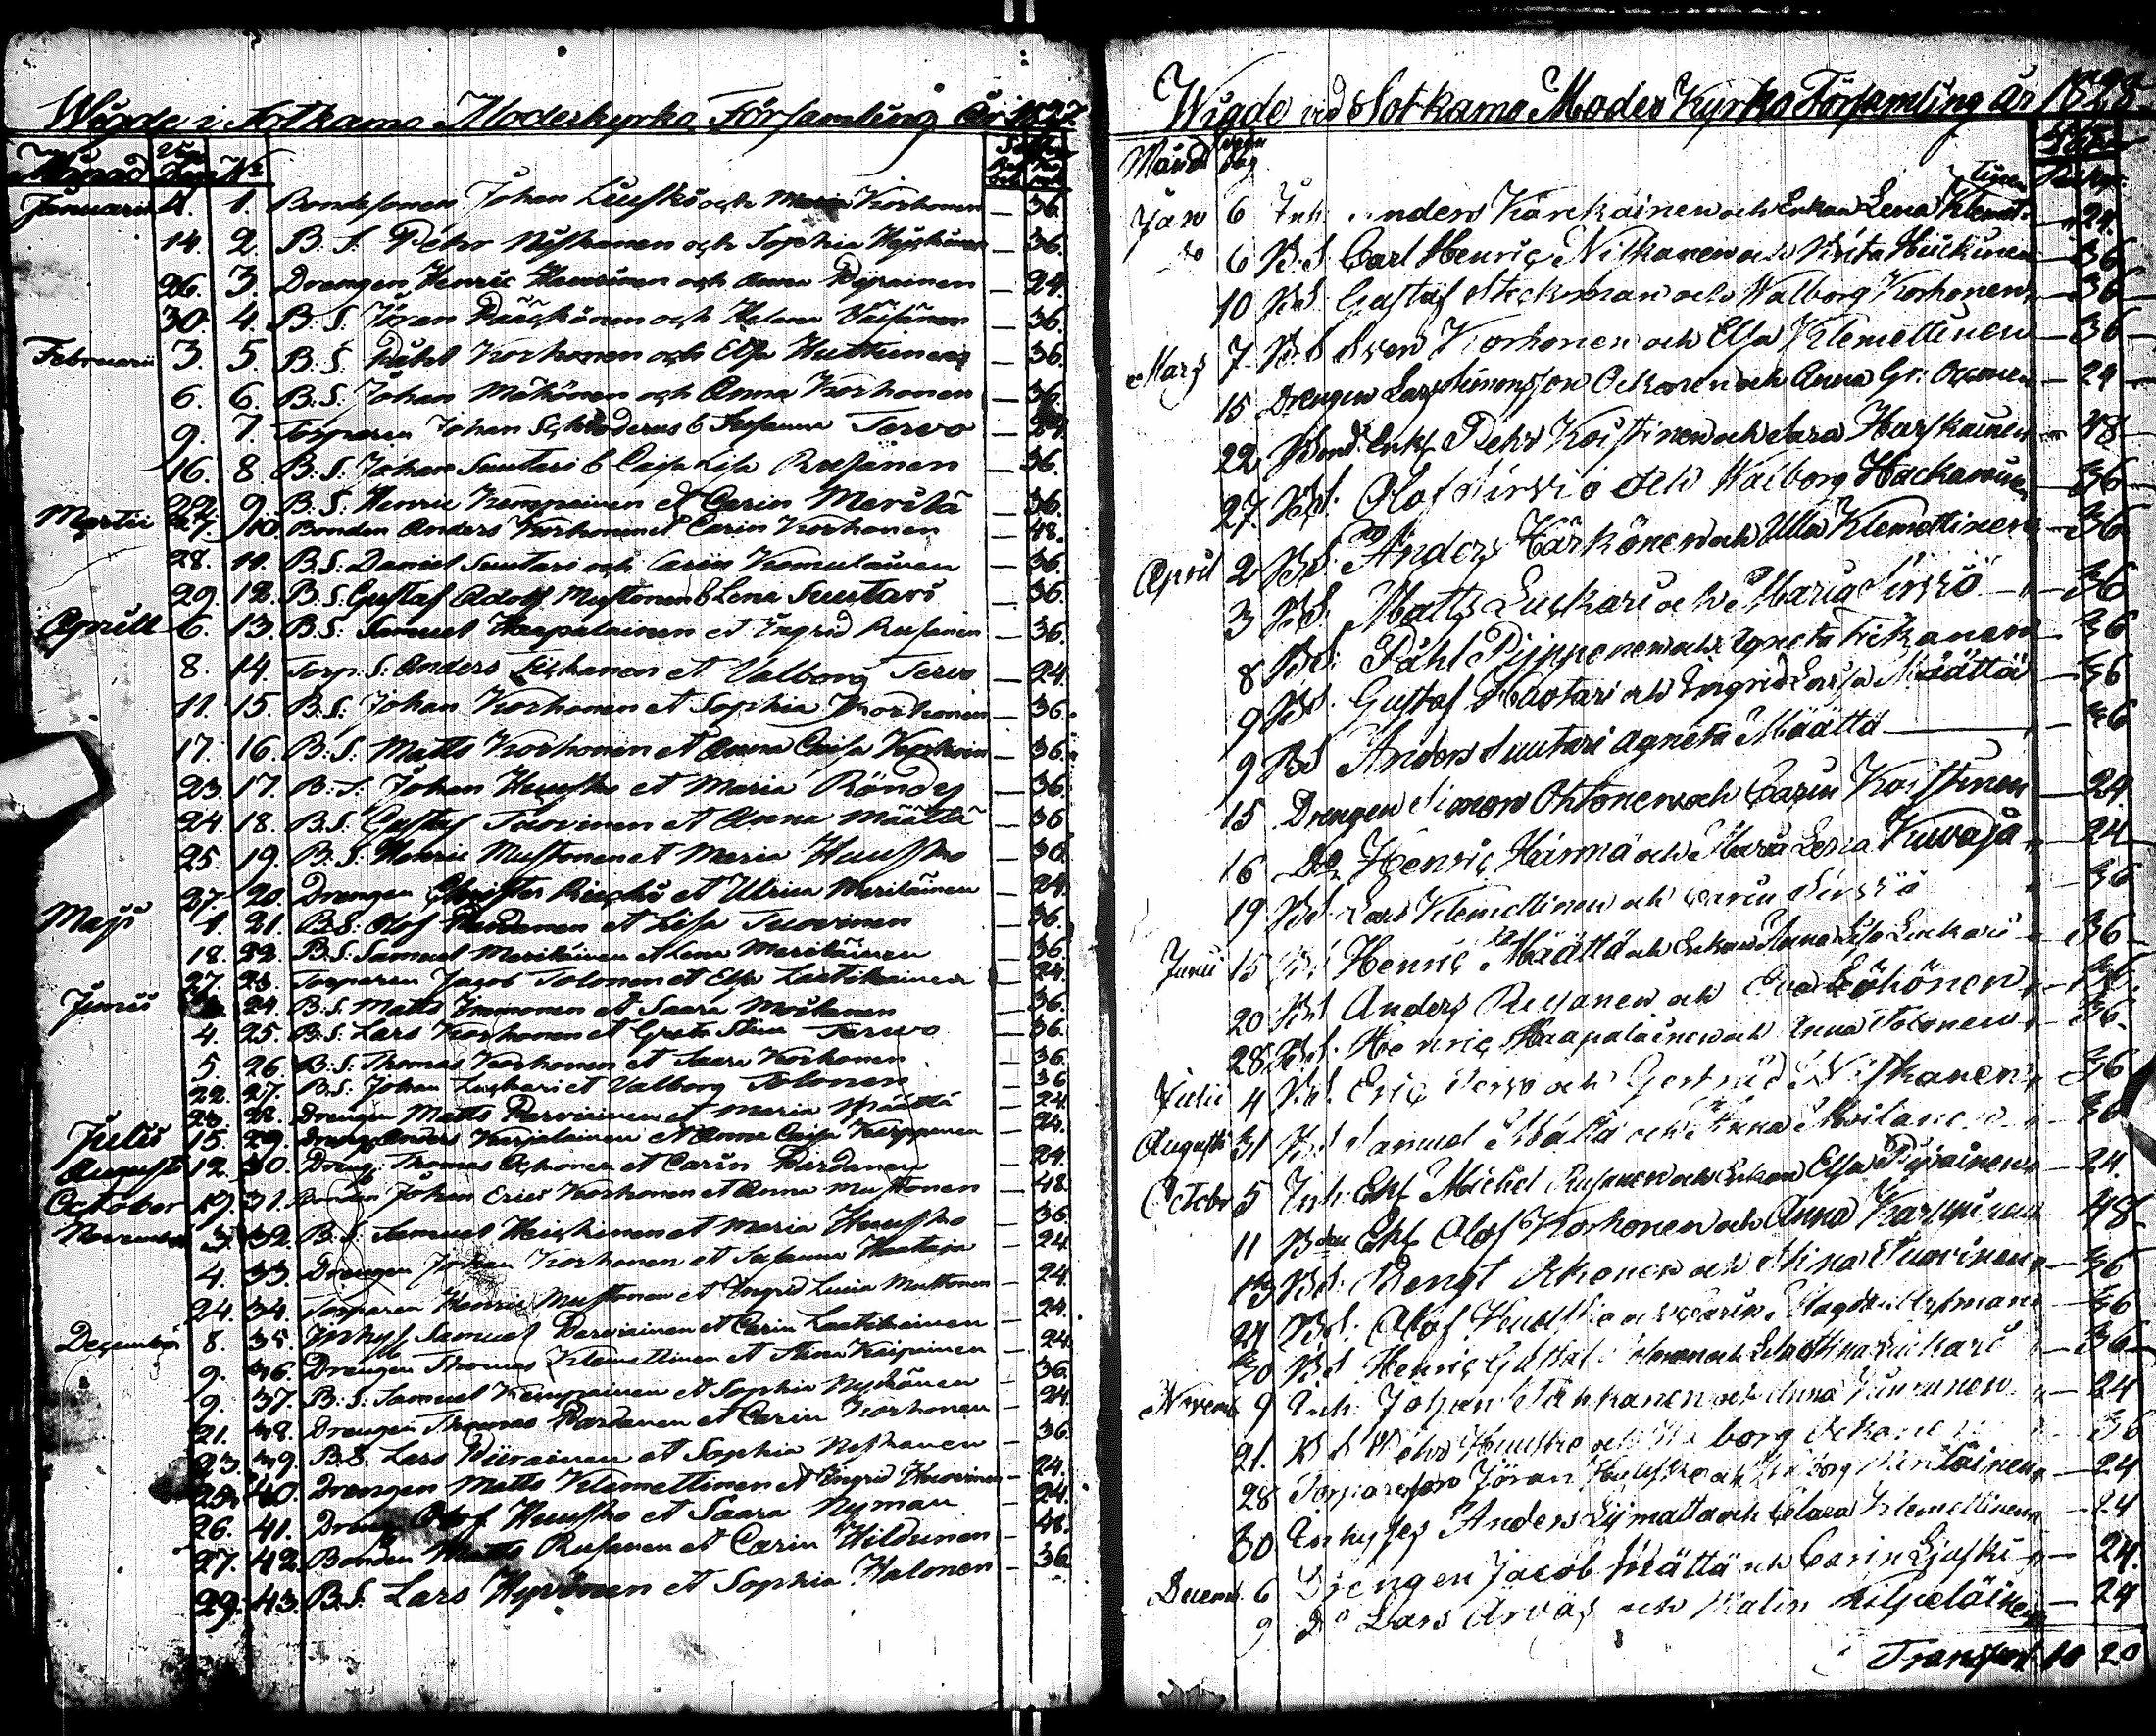 Wigde i Sotkamo Moderkyrko Församling År 1827
Månad Dag No
Januarii 4. 1. Bondesonen Johan Liuski och Maria Korhonen — 36.
14. 2. B. S. Petter Niskanen och Sophia Heiskanen — 36.
26. 3. Drengen Henric och Anna Pyrainen — 24.
30. 4. B. S. Jöran Pääskönen och Helena Väisänen — 36.
Februarii 3. 5. B. S. Påhl Korhonen och Elsa Huttunen — 36.
6. 6. B. S. Johan Mähönen och Anna Korhonen — 36.
9. 7. Torparen Johan Schroderus & Susanna Tervo — 24.
16. 8. B. S. Johan Suutari & Caisa Lisa Rusanen — 36.
22. 9. B. S. Henric Kemppainen et Carin Merilä — 36.
Martii 27. 10. Bonden Anders Korhonen et Carin Korhonen — 48.
28. 11. B. S. Daniel Suutari och Carin Komulainen — 36.
29. 12. B. S. Gustaf Adolf Mustonen & Lena Suutari — 36.
Aprill 6. 13. B. S. Samuel Haapalainen et Ingrid Rusanen — 36.
8. 14. Torp. S. Anders et Valborg Tervo — 24.
11. 15. B. S. Johan Korhonen et Sophia Korhonen — 36.
17. 16. B. S. Matts Korhonen et Anna Caisa Korhonen — 36.
23. 17. B. S. Johan Huusko et Maria Röndy — 36.
24. 18. B. S. Gustaf Tuovinen et Anna Määttä — 36
25. 19. B. S. Henric Mustonen et Maria Huusko — 36.
27. 20. Drengen Christer et Ulrica Meriläinen — 24.
Maji 1. 21. B. S. Olof Pardanen et Lisa Tuovinen — 36.
18. 22. B. S. Samuel Meriläinen et Lena Meriläinen — 36.
27. 23. Torparen Jacob Tolonen et Elsa Laatikainen — 24.
Junii 24. B. S. Matts Immonen et Saara Moilanen — 36.
4. 25. B. S. Lars Korhonen et Greta Stina Tervo — 36.
5. 26. B. S. Thomas Korhonen et Saara Korhonen — 36.
22. 27. B. S. Johan Luckari et Valborg Tolonen — 36
23. 28. Drengen Matts Parviainen et Maria Määttä — 24.
Julii 15. 29. Dreng Anders Karjalainen et Anna Caisa Karppinen — 24.
Augusti 12. 30. Dreng. Thomas Ockonen et Carin Pardanen — 24.
October 19. 31. Bonden Johan Eric Korhonen et Anna Mustonen — 48.
November 3. 32. B. S. Samuel Heickinen et Maria Huusko — 36.
4. 33. Drengen Johan Korhonen et Susanna Haataja — 24
24. 34. Torparen Henric Mustonen et Ingrid Lucia Mustonen — 24.
December 8. 35. Inhyss Samuel Parviainen et Carin Laatikainen — 24.
9. 36. Drengen Thomas Klemettinen et Stina Kaipainen — 24
9. 37. B. S. Samuel Kemppainen et Sophia Nyskänen — 36.
21. 38. Drengen Thomas Pardanen et Carin Korhonen — 24
23. 39. B. S. Lars Piirainen et Sophia Niskanen — 36.
40. Drengen Matts Klemettinen et Ingrid Huovinen — 24.
26. 41. Dreng Olof Huusko et Saara Nyman — 24.
27. 42. Bonden Matts Rusanen et Carin Hildunen — 48.
29. 43. B. S. Lars Hyvönen et Sophia Halonen — 36
Wigde vid Sotkamo Moder Kyrko Församling År 1828
Månad dag
Jan 6 Inh. Anders Kärckäinen och Enkan Lena Klemettinen — 24.
6 B. S. Carl Henric Niskanen och Brita Huckinen — 36
10 B. S. Gustaf Stockman och Walborg Korhonen — 36
Mars 7 B. S. Sven Korhonen och Elsa Klemettinen — 36
15 Drengen Lars Simonsson Ockonen och Anna Gr. Ockonen — 24
22 Bond. Enkl. Pehr Koistinen och Sara Harskainen — 48
27. B. S. Olof Sirviö och Walborg Hackarainen — 36
April 2 B. S. Anders Härkönen och Ulla Klemettinen — 36
3 B. S. Matts Luckari och Maria Sirviö — 36
8 B. S. Påhl Pyppenen och Agneta Tickanen — 36
9 B. S. Gustaf Suutari och Ingrid Lovisa Määttä — 36
9 B. S. Anders Suutari Agneta Määttä — 36
15 Drengen Simon Ohtonen och Carin Koistinen — 24
16 Do Henric Härmä och Maria Lovisa Kuvaja — 24
19 B. S. Lars Klemettinen och Carin Sirviö — 36
Junii 15 B. S. Henric Määttä och Enkan Anna Lisa Luckari — 36
20 B. S. Anders Rusanen och Eva Löhönen — 36
28 B. S. Henric Haapalainen och Anna Tolonen — 36.
Julii 4 B. S. Eric Tervo och Gertrud Niskanen — 36
Augusti 31 B. S. Samuel Määttä och Anna Moilanen — 36
Octobr 5 Inh. Enkl. Michel Rusanen och Enkan Elsa Pyrainen — 24.
11 Bdn Enkl. Olof Korhonen och Anna Karppinen 48
13 B. S. Bengt Ockonen och Stina Tuovinen — 36
24 B. S. Olof Huusko och Carin Magdal. Artman — 36
30 B. S. Henric Gustaf och Stina Luckari — 36
Novemb 9 Inh. Johan Tickanen och Anna — 24
21. B. S. Pehr Huusko och Walborg Ockonen — 36
28 Torparesson Jöran Huusko och Walborg Meriläinen — 24
30 Inhyses Anders Lijmatta och Clara Klemettinen — 24
Decemb. 6 Drengen Jacob Määttä och Carin Ljuski — 24.
9 Do Lars Arväs och Malin Kilpeläinen — 24
Transport 10 20